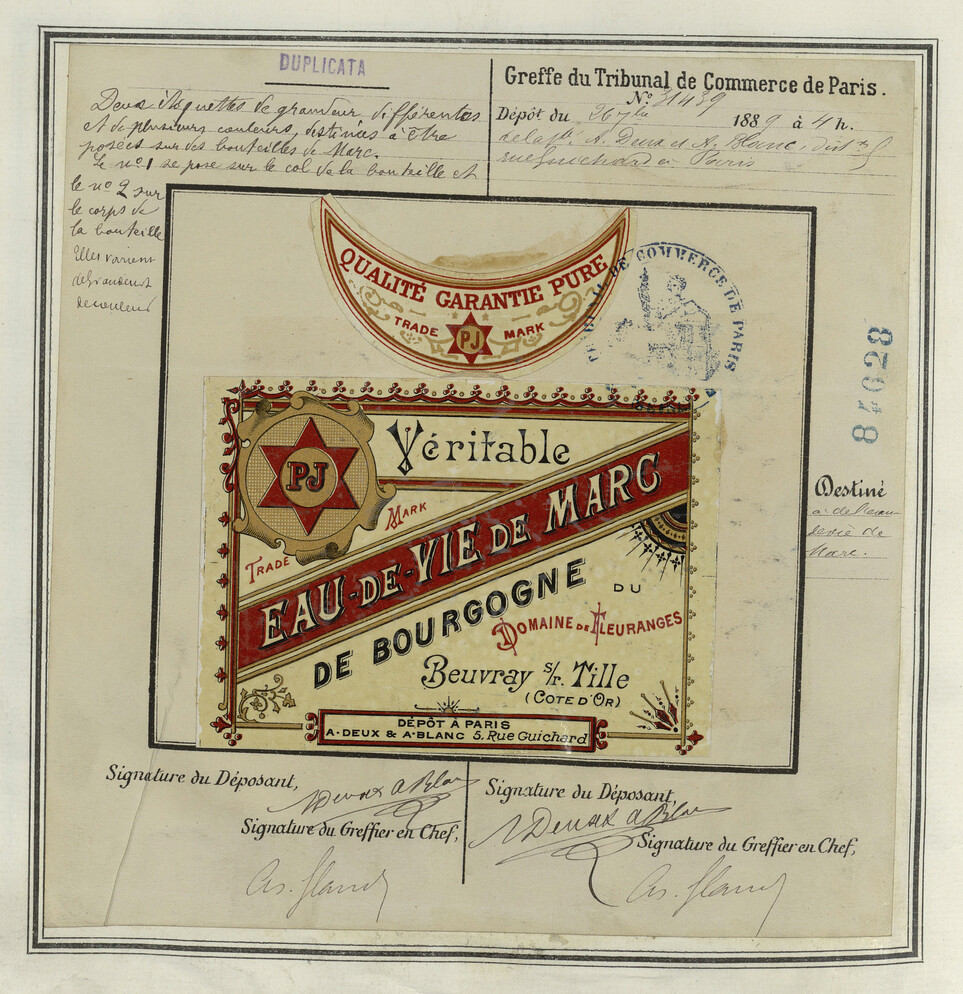 DUPLICATA
Greffe du Tribunal de Commerce de Paris.
N° 31439
Dépôt du 26 7bre 1889 à 4 h.
de la Sté A. Deux et A. Blanc, dist. 5
rue Guichard à Paris
Deux étiquettes de grandeur différentes
et de plusieurs couleurs, destinées à être
posées sur des bouteilles de Marc.
Le n° 1 se pose sur le col de la bouteille et
le n° 2 sur
le corps de
la bouteille
Elles varient
de grandeur et
de couleur
QUALITÉ GARANTIE PURE
TRADE PJ MARK
DE COMMERCE DE PARIS
84628
PJ
TRADE MARK
Véritable
EAU-DE-VIE DE MARC
DE BOURGOGNE
DU
DOMAINE DE FLEURANGES
Beuvray s/r. Tille
(COTE D'OR)
DÉPÔT À PARIS
A. DEUX & A. BLANC 5. Rue Guichard
Destiné
à de l'eau
de vie de
Marc.
Signature du Déposant,
A Deux A Blanc
Signature du Greffier en Chef,
Signature du Déposant,
A Deux A Blanc
Signature du Greffier en Chef,